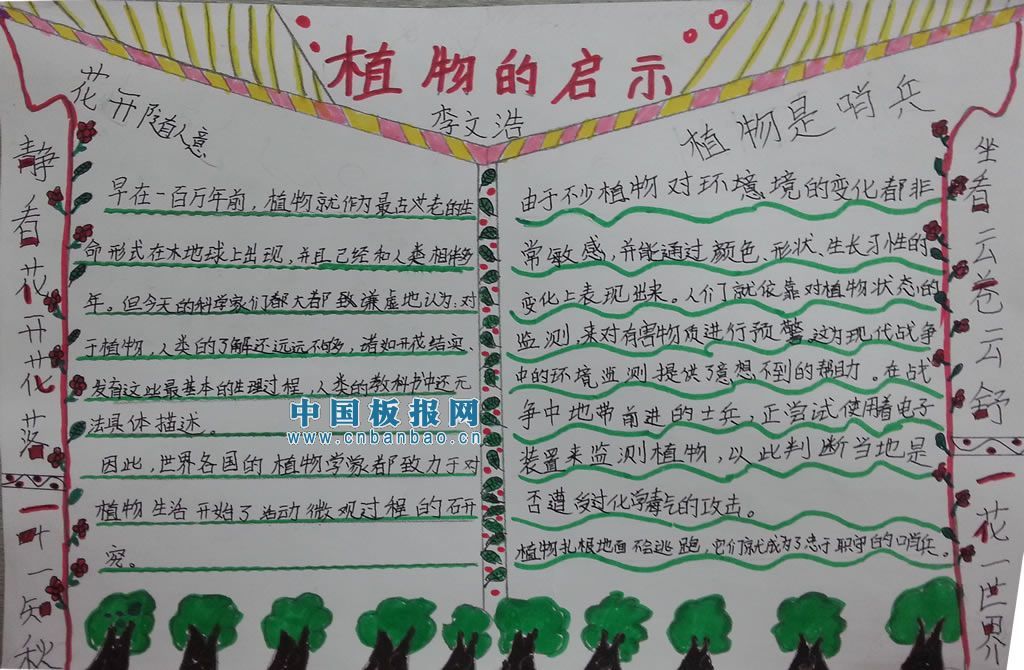 植物的启示
李文浩
静看花开花落
一叶一知秋
花开随人意
早在一百万年前，植物就作为最古老的生
命形式在本地球上出现，并且已经和人类相伴多
年。但今天的科学家们都大都致谦虚地认为：对
于植物，人类的了解还远远不够，诸如开花结实、
发育这些最基本的生理过程，人类的教科书中还无
法具体描述。
因此，世界各国的植物学家都致力于对
植物生活开始了活动微观过程的研
究。
植物是哨兵
由于不少植物对环意境的变化都非
常敏感，并能通过颜色、形状、生长习性的
变化上表现出来。人们就依靠对植物状态的
监测，来对有害物质进行预警。这为现代战争
中的环境监测提供了意想不到的帮助。在战
争中地带前进的士兵，正尝试使用着电子
装置来监测植物，以此判断当地是
否遭受过化学毒气的攻击。
植物扎根地面不会逃跑，它们就成为了忠于职守的哨兵。
坐看云卷云舒
一花一世界
中国板报网
www.cnbanbao.cn